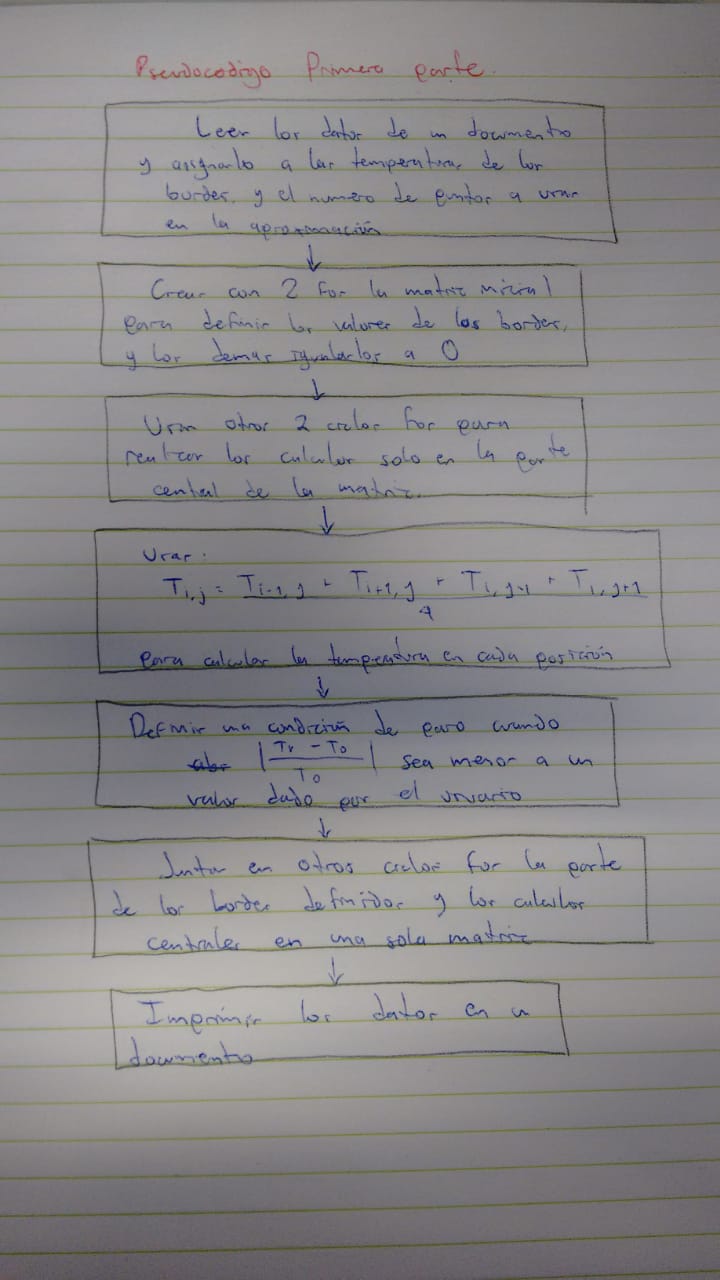 Pseudocodigo Primera parte.
Leer los datos de un documento
y asignarlo a las temperaturas de los
bordes, y el numero de puntos a usar
en la aproximación
↓
Crear con 2 for la matriz inicial
para definir los valores de los bordes,
y los demas igualarlos a 0
↓
Usar otros 2 ciclos for para
realizar los calculos solo en la parte
central de la matriz.
↓
Usar:
T_{i,j} = \frac{T_{i-1,j} + T_{i+1,j} + T_{i,j-1} + T_{i,j+1}}{4}
para calcular la temperatura en cada posición
↓
Definir una condición de paro cuando
|\frac{T_r - T_0}{T_0}| sea menor a un
valor dado por el usuario
↓
Juntar en otros ciclos for la parte
de los bordes definidos y los calculos
centrales en una sola matriz
↓
Imprimir los datos en un
documento